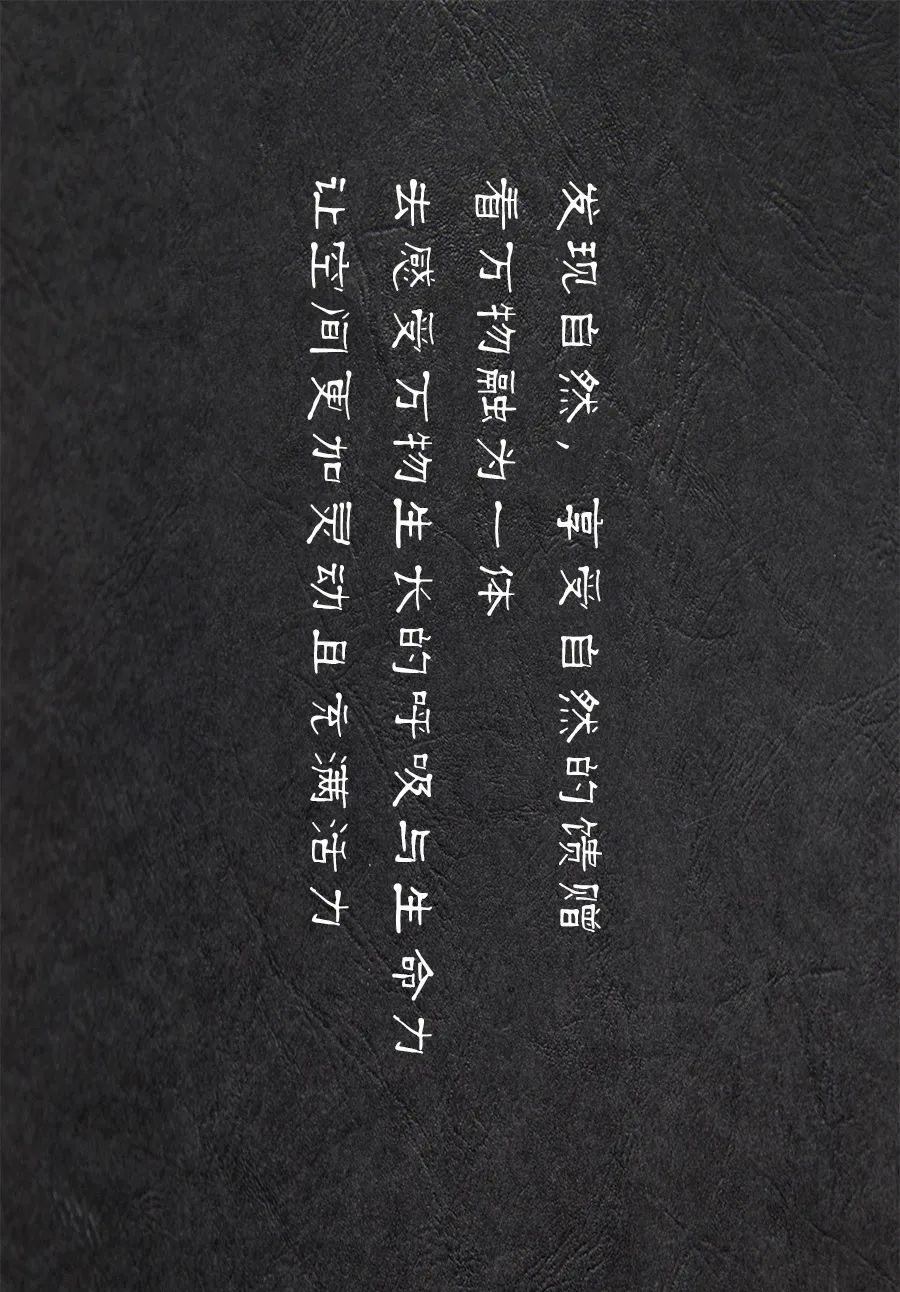 发现自然，享受自然的馈赠
看万物融为一体
去感受万物生长的呼吸与生命力
让空间更加灵动且充满活力